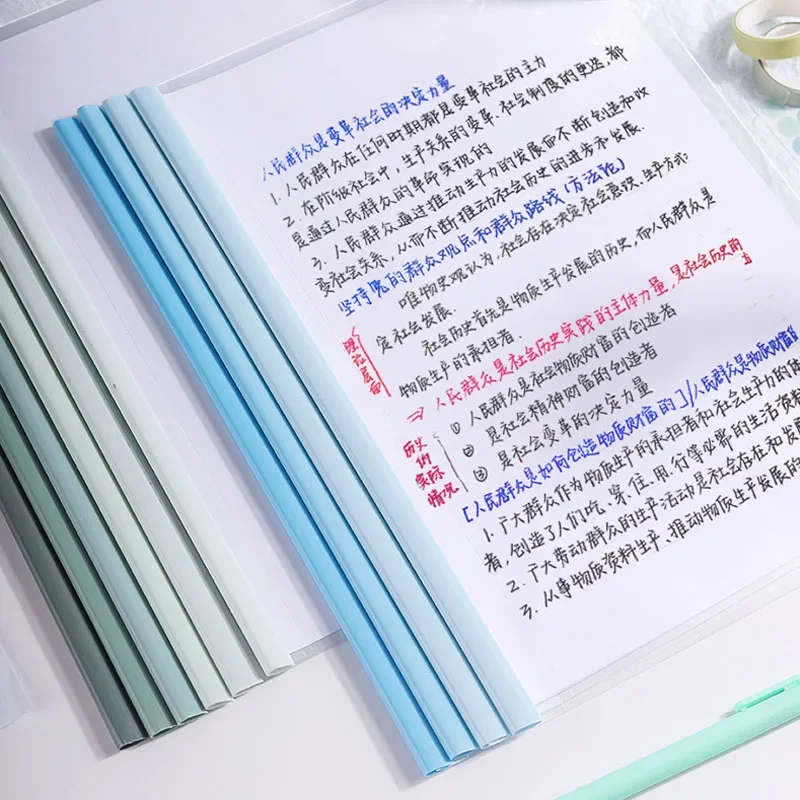 人民群众是变革社会的决定力量
1. 人民群众在任何时期都是变革社会的主力
2. 在阶级社会中，生产关系的变革、社会制度的更迭，都
是通过人民群众的革命实现的
3. 人民群众通过推动生产力的发展而不断创造和改
变社会关系，从而不断推动社会历史的进步和发展.
坚持党的群众观点和群众路线(方法论)
唯物史观认为，社会存在决定社会意识.生产方式
定社会发展.
社会历史首先是物质生产发展的历史，而人民群众是
物质生产的承担者.
理论层面
⇒ 人民群众是社会历史实践的主体力量，是社会历史的
① 人民群众是社会物质财富的创造者
② 是社会精神财富的创造者
③ 是社会变革的决定力量
历史的实际情况
[人民群众是如何创造物质财富的]/人民群众是物质财富的
1. 广大群众作为物质生产的承担者和社会生产力的体
者，创造了人们吃、穿、住、用、行等必需的生活资料
2. 广大劳动群众的生产活动是社会存在和发展
3. 从事物质资料生产、推动物质生产发展的